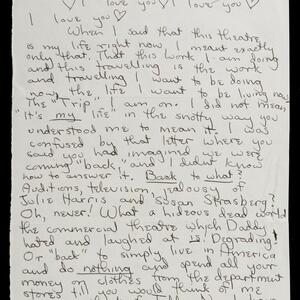 I love you♡ I love you♡
I love you♡
When I said that this theatre
is my life right now, I meant exactly
only that. That this work I am doing
and this travelling is the work
and travelling I want to be doing
now, the life I want to be living now,
The "Trip" I am on. I did not mean,
"It's my life" in the snotty way you
understood me to mean it. I was
confused by that letter where you
said you had imagined we were
coming "back," and I didn't know
how to answer it. Back to what?
Auditions, television, jealousy of
Jolie Harris and Susan Strasberg?
Oh, never! What a hideous dead world
the commercial theatre which Daddy
hated and laughed at is. Degrading!
Or "back" to simply live in America
and do nothing and spend all your
money on clothes from the department
stores til you would think of me